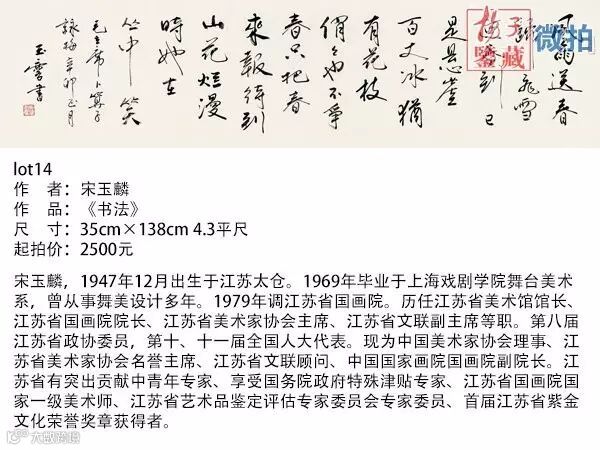 風雨送春
歸飛雪
迎春到已
是悬崖
百丈冰猶
有花枝
俏俏也不爭
春只把春
來報待到
山花烂漫
時她在
丛中笑
毛主席卜算子
詠梅辛卯正月
玉麐書
子
鑒藏
微拍
lot14
作 者：宋玉麟
作 品：《书法》
尺 寸：35cm×138cm 4.3平尺
起拍价：2500元
宋玉麟，1947年12月出生于江苏太仓。1969年毕业于上海戏剧学院舞台美术
系，曾从事舞美设计多年。1979年调江苏省国画院。历任江苏省美术馆馆长、
江苏省国画院院长、江苏省美术家协会主席、江苏省文联副主席等职。第八届
江苏省政协委员，第十、十一届全国人大代表。现为中国美术家协会理事、江
苏省美术家协会名誉主席、江苏省文联顾问、中国国家画院国画院副院长。江
苏省有突出贡献中青年专家、享受国务院政府特殊津贴专家、江苏省国画院国
家一级美术师、江苏省艺术品鉴定评估专家委员会专家委员、首届江苏省紫金
文化荣誉奖章获得者。
大数跨境